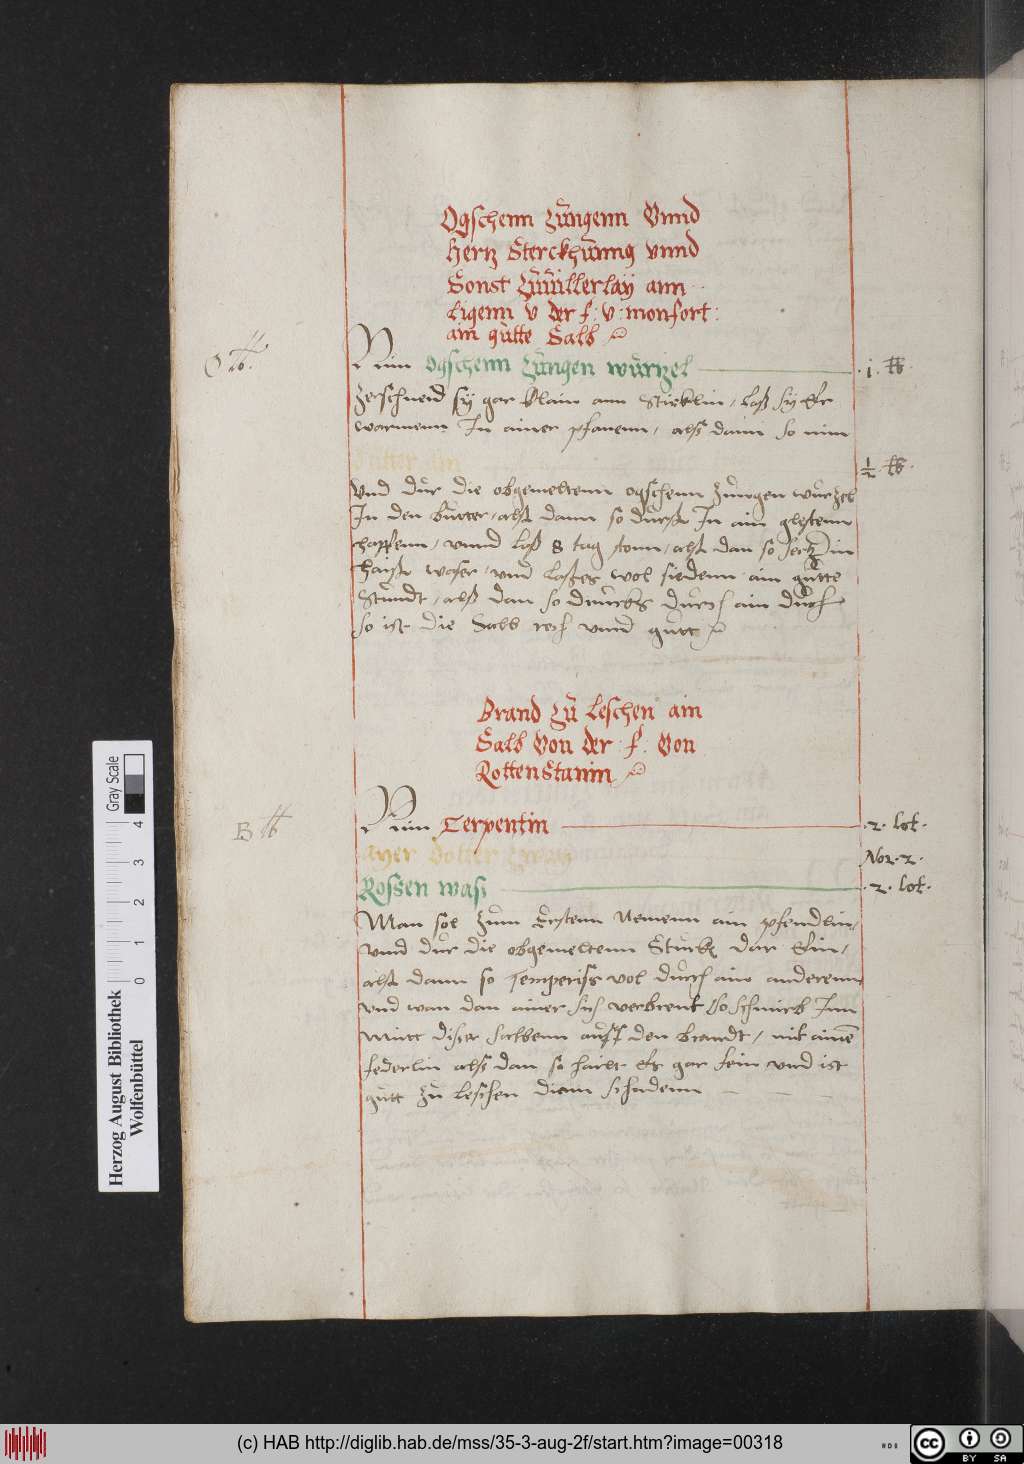 Ogschenn Zungenn Vnnd
Hertz Sterckhunng vnnd
Sonst Zuuillerlay ann
ligenn v der f: v: monfort:
ain gutte Salb
Nim Ogschenn Zungen wurtzel i. ℔.
Zerschneid sy gar klain ann Stücklin / laß sy
warmenn In ainer pfanenn / alß dann so nim
Butter ain ½ ℔.
Vnd dur die obgemeltenn ogschenn zungen wurzel
In den butter / alß dann so durß In ain glestenn
haffenn / vnnd laß 8 tag stonn / alß dan so setz In
haiß waser / vnd laß es wol siedenn ain gutte
Stundt / alß dan so druckhs durch ain duch
so ist die Salb rech vnnd gutt
Brand Zu leschen ain
Salb Von der f. Von
Rottenstanin
B
Nim Terpentin .2. lot.
Ayer Dotter Zway No: 2.
Rossen wasi .2. lot.
Man sol zum Erstenn Nemenn ain pfendlin /
vnnd dur die obgemeltenn Stuckh dar Ein /
alß dann so Temperiß vol durch ain anderenn
vnd wan dan ainer sich verbrent so schmirb Inn
mitt diser salbenn auff den brandt / mit ainē
federlin alß dan so hailt es gar fein vnd ist
gutt zu leschen dienn
Herzog August Bibliothek
Wolfenbüttel
0 1 2 3 4
Gray Scale
(c) HAB http://diglib.hab.de/mss/35-3-aug-2f/start.htm?image=00318
cc BY SA